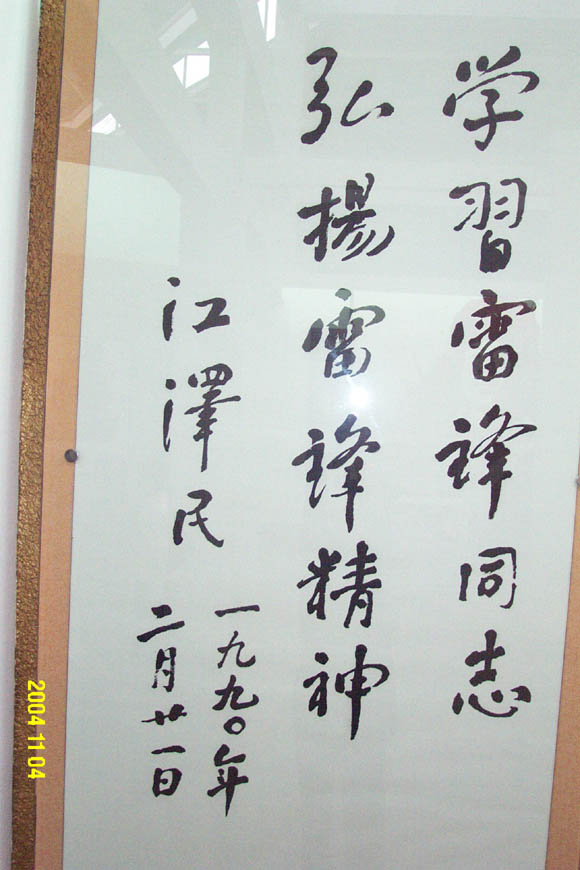 学習雷锋同志
弘揚雷鋒精神
江澤民
一九九〇年
二月廿一日
2004 11 04